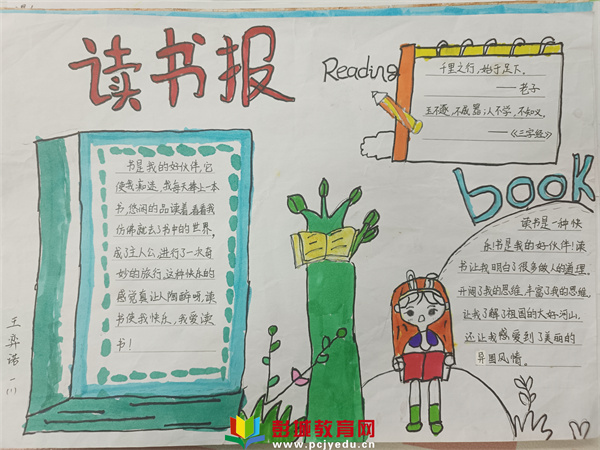 读书报
Reading
千里之行,始于足下。
——老子
玉不琢,不成器;人不学,不知义。
——《三字经》
book
书是我的好伙伴,它
使我着迷,我每天捧上一本
书,悠闲的品读着,看着我
仿佛就去了书中的世界,
成了主人公,进行了一次奇
妙的旅行,这种快乐的
感觉真让人陶醉呀,读
书使我快乐,我爱读
书!
读书是一种快
乐!书是我的好伙伴!读
书让我明白了很多做人的道理。
开阔了我的思维,丰富了我的思维,
让我了解了祖国的大好河山,
还让我感受到了美丽的
异国风情。
王弈诺 一(1)
彭城教育网
www.pcjyedu.cn